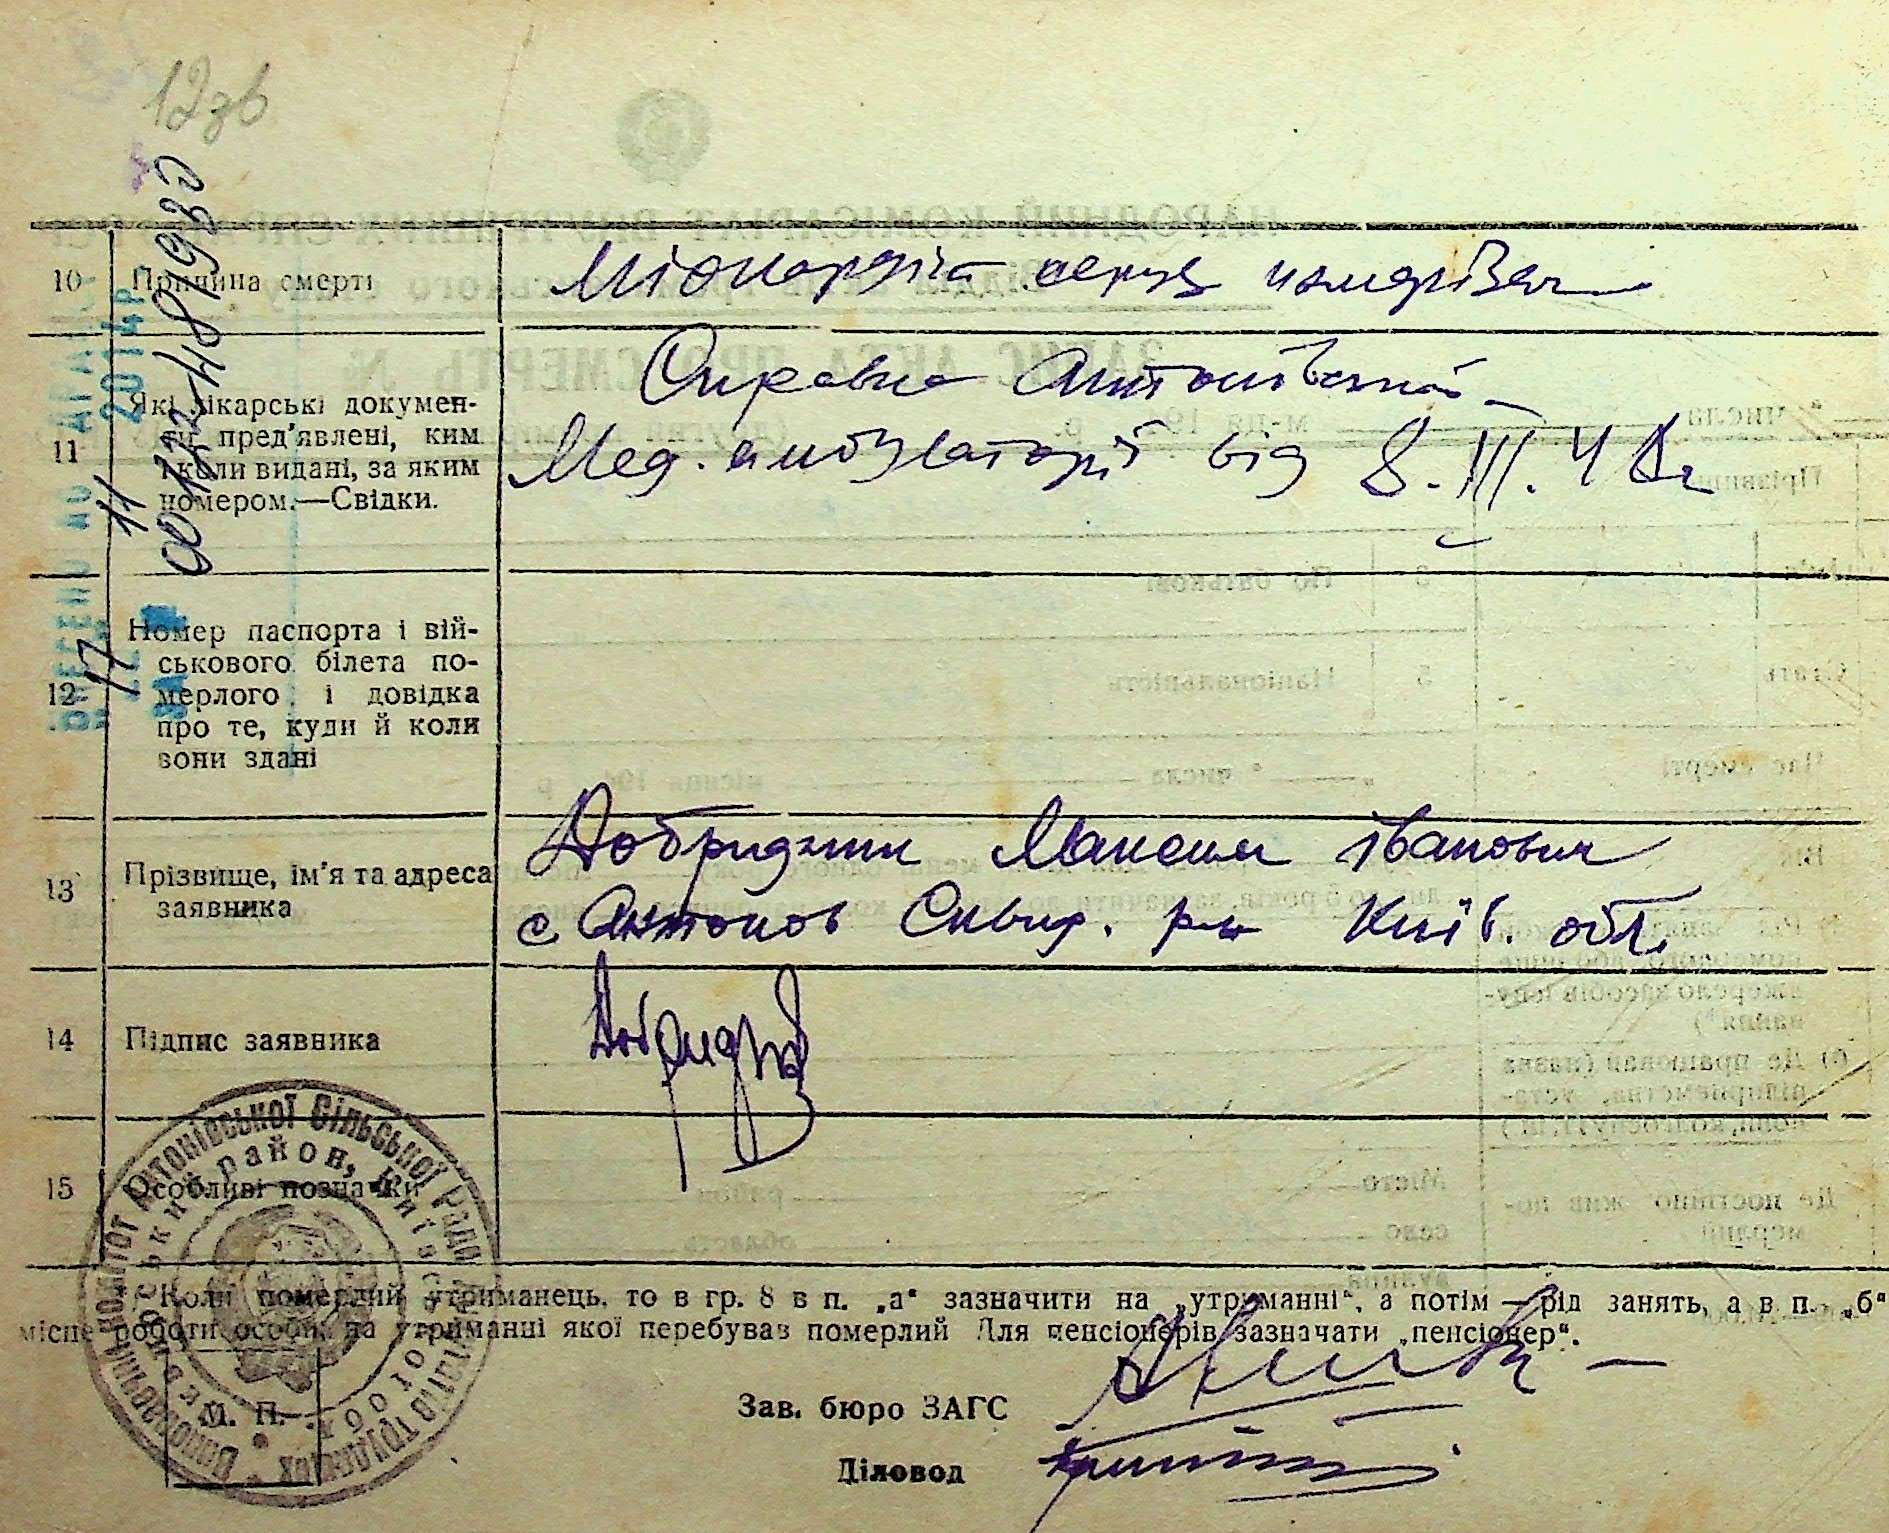 12зв
00177481930
17 11
2014 р.
10 Причина смерти
Міокардіт серця
11 Які лікарські докумен-
ти пред'явлені, ким
і коли видані, за яким
номером.—Свідки.
Справка Антонівської
Мед. амбулаторії від 8.III.48
12 Номер паспорта і вій-
ськового білета по-
мерлого і довідка
про те, куди й коли
вони здані
13 Прізвище, ім'я та адреса
заявника
Максим Іванович
с Антонов Сквир. р-н Київ. обл.
14 Підпис заявника
15 Особливі позначки
Коли померлий утриманець, то в гр. 8 в п. „а“ зазначити на „утриманні“, а потім — рід занять, а в п. „б“
місце роботи особи, на утриманні якої перебував померлий Для пенсіонерів зазначати „пенсіонер“.
М. П.
Зав. бюро ЗАГС
Діловод
Виконавчий комітет Антонівської Сільської Ради депутатів трудящих
Сквирський район, Київської обл.